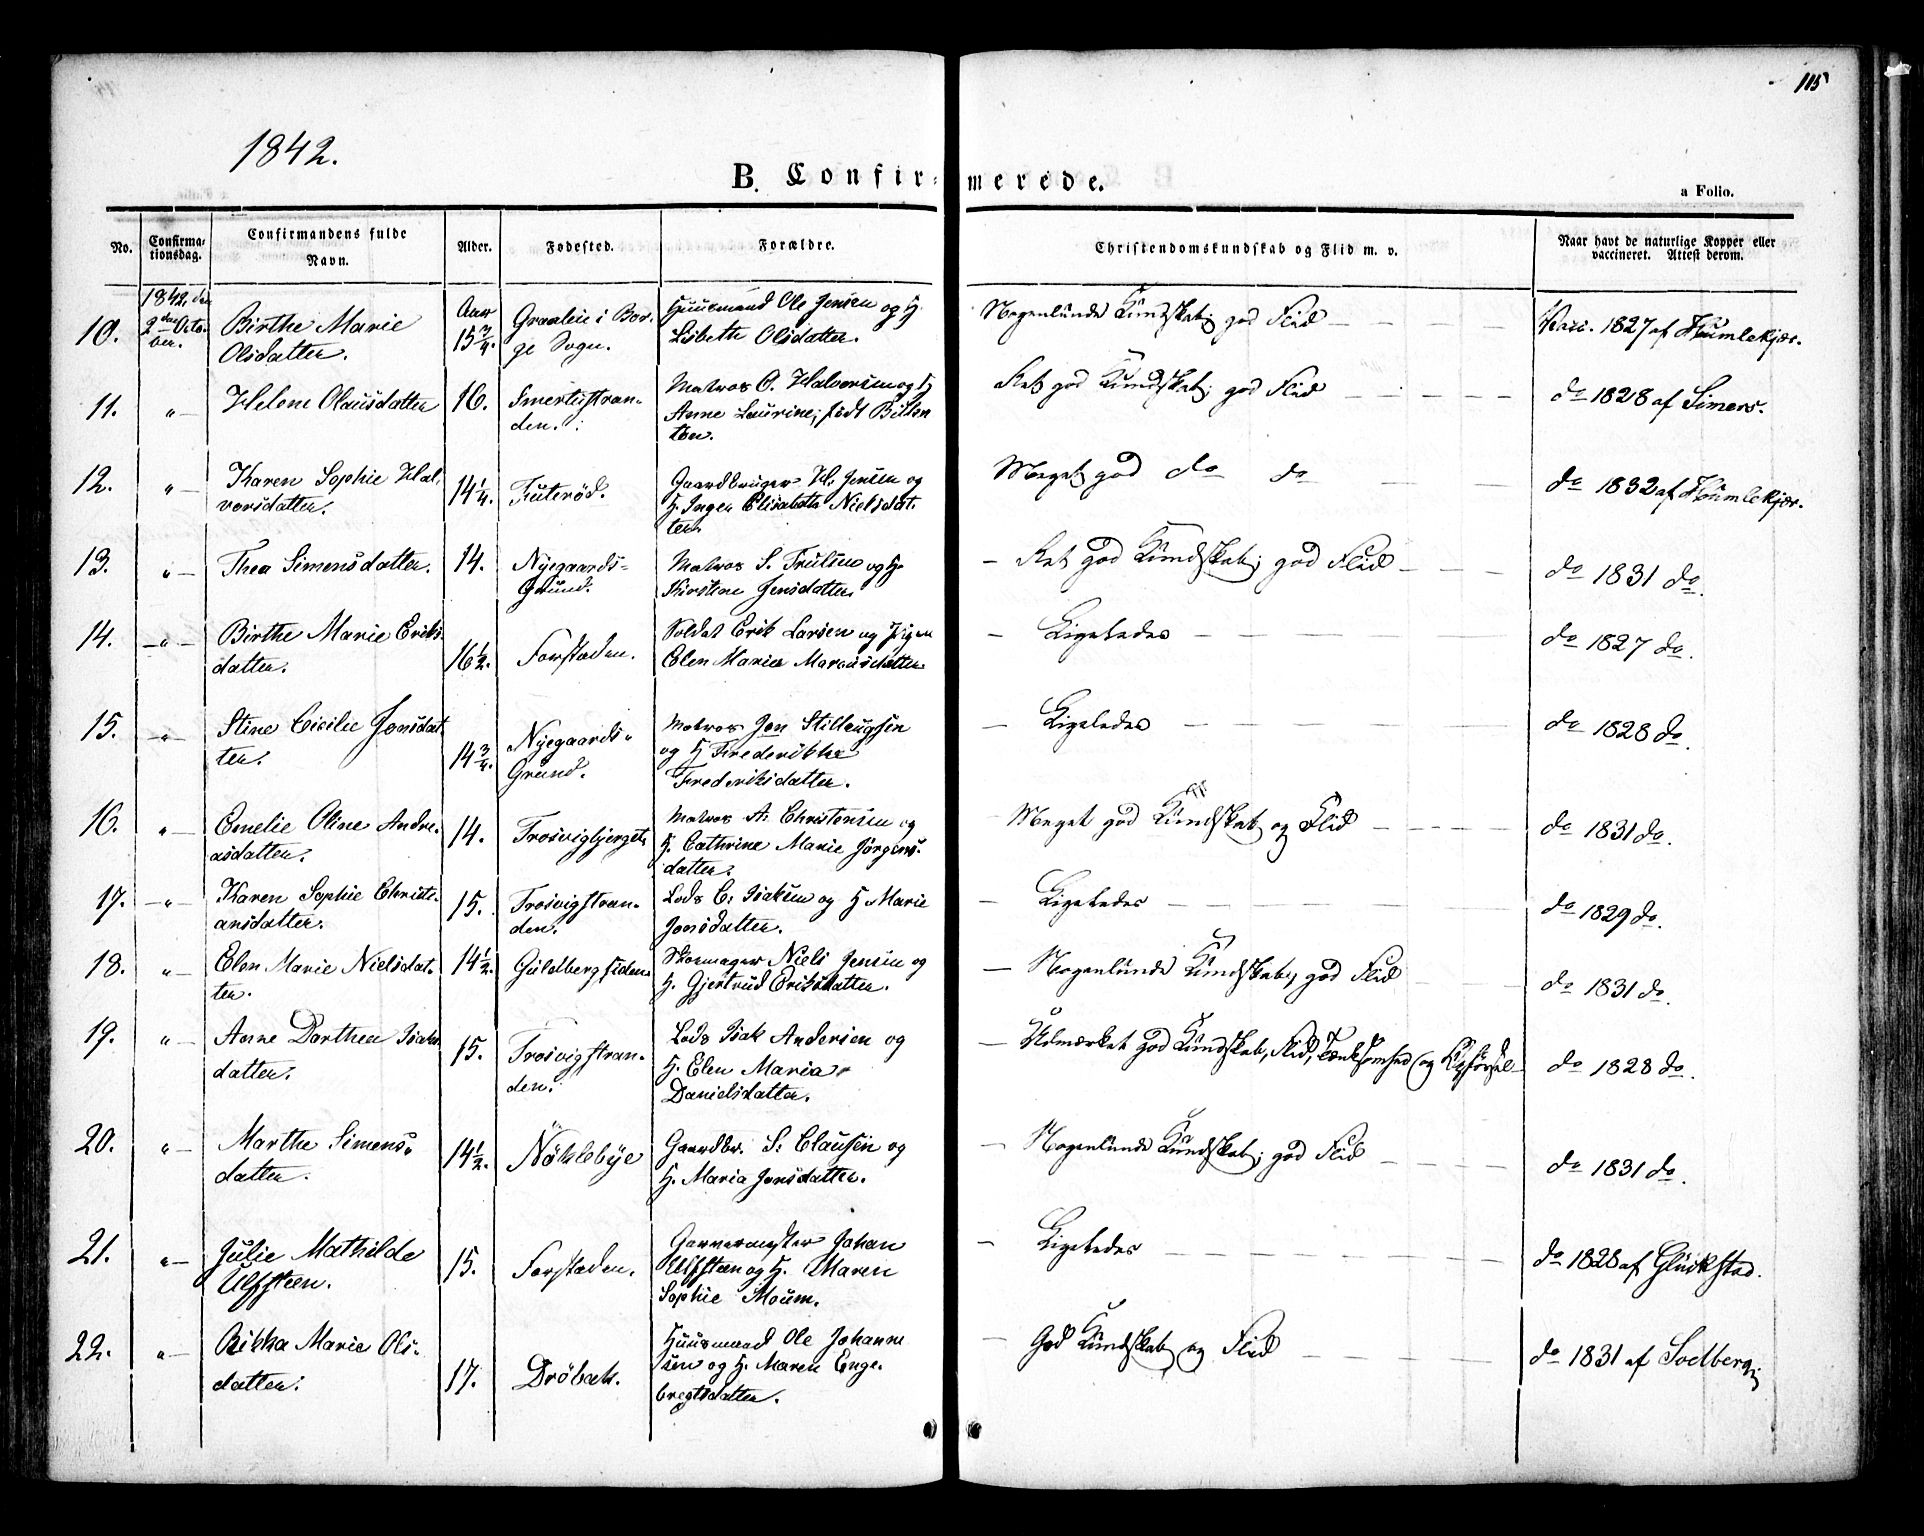 115
1842.
B. Confir=merede.
a Folio.
No. Confirma-tionsdag. Confirmandens fulde Navn. Alder. Fødested. Forældre. Christendomskundskab og Flid m. v. Naar havt de naturlige Kopper eller vaccineret. Attest derom.
10. 1842, den 2den Octo-ber. Birthe Marie Olsdatter. Aar 15 3/4. Graalie i Bor-ge Sogn. Huusmand Ole Jensen og H. Lisbeth Olsdatter. Nogenlunde Kundskab; god Flid — Vacc. 1827 af Humlekjær.
11. " Helene Olausdatter 16. Smertustran-den. Matros O. Halvorsen og H. Anne Laurine, født Bitten-ton. Ret god Kundskab; god Flid — do 1828 af Simers.
12. " Karen Sophie Hal-vorsdatter. 14 1/4. Futerød. Gaardbruger H. Jensen og H. Inger Elisabeth Nielsdat-ter. Meget god do do — do 1832 af Humlekjær.
13. " Thea Simensdatter. 14. Nyegaards-Grund. Matros S. Trulsen og H. Kirstine Jensdatter — Ret god Kundskab; god Flid — do 1831 do.
14. " Birthe Marie Eriks-datter. 16 1/2. Forstaden. Soldat Erik Larsen og Pigen Elen Marie Marcusdatter — Ligeledes — do 1827 do.
15. " Stine Cicilie Jonsdat-ter. 14 3/4. Nyegaards-Grund. Matros Jon Stillaugsen og H Frederikke Frederiksdatter. — Ligeledes — do 1828 do.
16. " Emelie Oline Andre-asdatter. 14. Trosvigbjerget. Matros A. Christensen og H. Cathrine Marie Jörgens-datter. Meget god Kundskab og Flid — do 1831 do.
17. " Karen Sophie Christi-ansdatter. 15. Trosvigstran-den. Lods C. Isaksen og H Marie Jonsdatter. — Ligeledes — do 1829 do.
18. " Elen Marie Nielsdat-ter. 14 1/2. Guldbergsiden Skoemager Niels Jensen og H. Gjertrud Eriksdatter. — Nogenlunde Kundskab, god Flid do 1831 do.
19. " Anne Dorthea Isaks-datter. 15. Trosvigstran-den. Lods Isak Andersen og H. Elen Maria Danielsdatter. — Udmærket god Kundskab, Flid, Tænksomhed og Opførsel — do 1828 do.
20. " Marthe Simens-datter. 14 1/2. Nöklebye Gaardbr. S. Clausen og H. Maria Jonsdatter. — Nogenlunde Kundskab; god Flid — do 1831 do.
21. " Julie Mathilde Ulfsteen. 15. Forstaden. Garvermester Johan Ulfsteen og H. Maren Sophie Moum. — Ligeledes — do 1828 af Glückstad.
22. " Rikka Marie Ols-datter. 17. Dröbak. Huusmand Ole Johanne-sen og H. Maren Enge-bregtsdatter. — God Kundskab og Flid — do 1831 af Sodberg